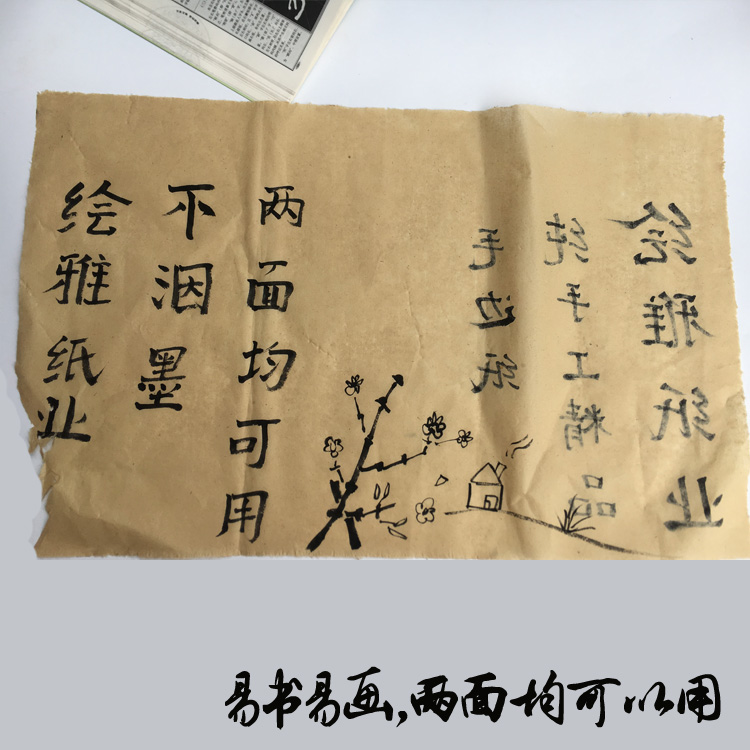 绘雅纸业
纯手工精品
毛边纸
两面均可用
不洇墨
绘雅纸业
易书易画,两面均可以用